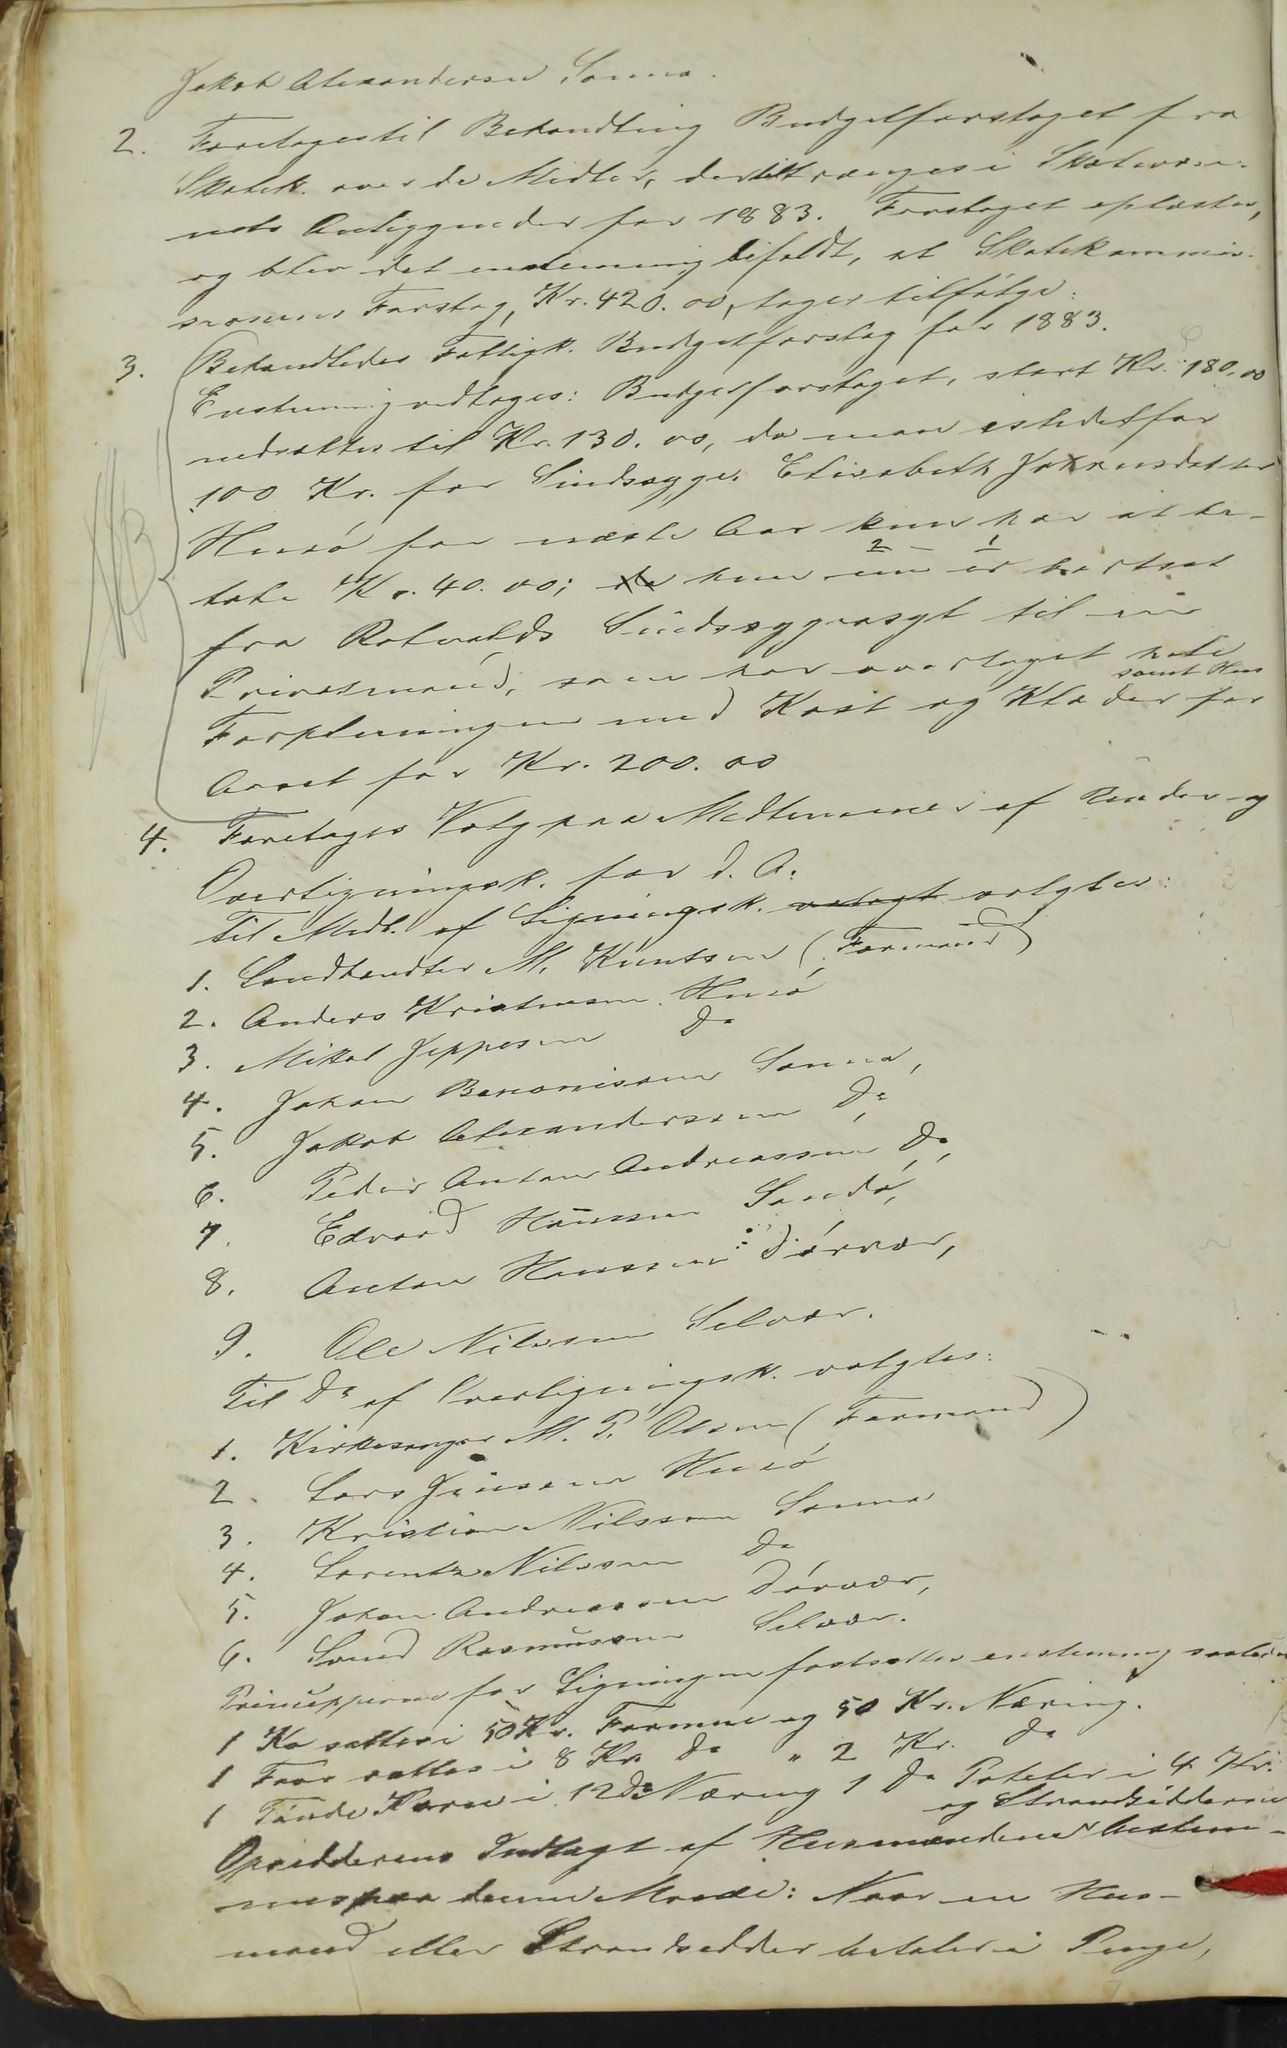 Jakob Alexandersen Sanna.
2. Foretages til Behandling Budgetforslaget fra
Skolek. over de Midler, der tiltrænges i Skolevæse-
nets Anliggender for 1883. Forslaget oplæstes,
og blev det enstemmig bifaldt, at Skolekommis-
sionens Forslag, Kr. 420.00, tages tilfølge.
3. Behandledes Fattigk. Budgetforslag for 1883.
Enstemmig vedtoges: Budgetforslaget, stort Kr. 180.00
nedsættes til Kr. 130.00, da man istedetfor
100 Kr. for Sindssyge Elisabeth Johansdatter
Husø for næste Aar kun har at be-
tale Kr. 40.00; da hun nu er bortsat
fra Rotvolds Sindssygeasyl til en
Privatmand, som har overtaget hele
Forpleiningen med Kost og Klæder samt Hus for
Aaret for Kr. 200.00
4. Foretoges Valg paa Medlemmer af Under- og
Overligningsk. for d. A.
Til Medl. af Ligningsk. valgtes:
1. Landhandler M. Kuntsen (Formand)
2. Anders Kristensen Husø
3. Mikal Jeppesen Do
4. Johan Benonisen Sanna,
5. Jakob Alexandersen Do
6. Peder Anton Andreassen Do,
7. Edvard Hanssen Sandø,
8. Anton Hanssen Dørvær,
9. Ole Nilssen Selvær.
Til Do af Overligningsk. valgtes:
1. Kirkesanger M. P. Olsen (Formand)
2. Lars Jensen Husø
3. Kristian Nilssen Sanna
4. Lorentz Nilssen Do
5. Johan Andreassen Dørvær,
6. Rasmussen Selvær.
Principperne for Ligningen fastsættes enstemmig saaledes
1 Ko sættes i 50 Kr. Formue og 50 Kr. Næring.
1 Faar sættes i 8 Kr. Do " 2 Kr. Do
1 Tønde Korn i 12 Do Næring 1 Do Poteter i 4 Kr.
Opsidderens Indtægt af Husmændene og Strandsidderne bestem-
mes paa denne Maade: Naar en Hus-
mand eller Strandsidder betaler i Penge,